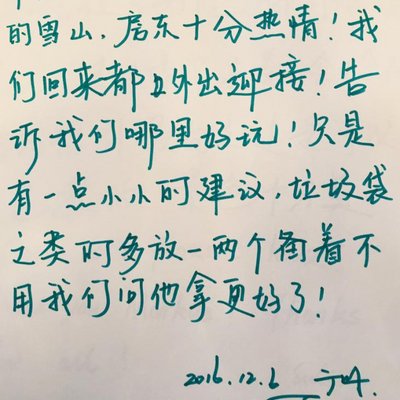 的雪山，房东十分热情！我
们回来都且外出迎接！告
诉我们哪里好玩！只是
有一点小小的建议，垃圾袋
之类的多放一两个备着不
用我们问他拿更好了！
2016.12.6